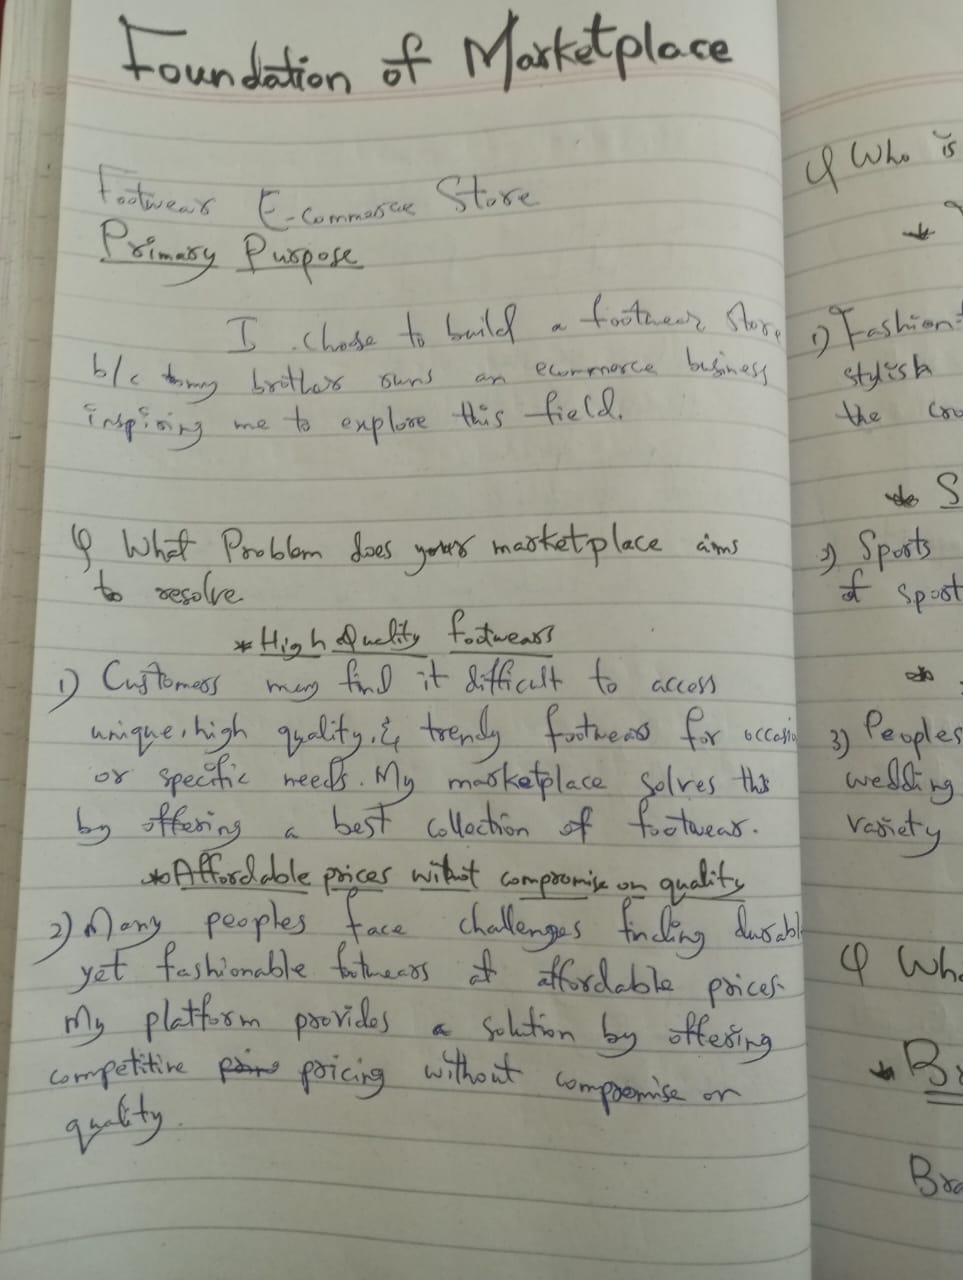 Foundation of Marketplace
Footwear E-commerce Store
Primary Purpose
I chose to build a footwear store
b/c my brother runs an ecommerce business
inspiring me to explore this field.
Q What Problem does your marketplace aims
to resolve
* High Quality footwears
1) Customers may find it difficult to access
unique, high quality, & trendy footwears for occasio
or specific needs. My marketplace solves this
by offering a best collection of footwear.
* Affordable prices without compromise on quality
2) Many peoples face challenges finding durabl
yet fashionable footwears at affordable prices.
My platform provides a solution by offering
competitive pricing without compromise on
quality.
Q Who is
1) Fashion
stylish
the cro
* S
2) Sports
of sport
3) Peoples
wedding
variety
Q Wh
* Br
Bra